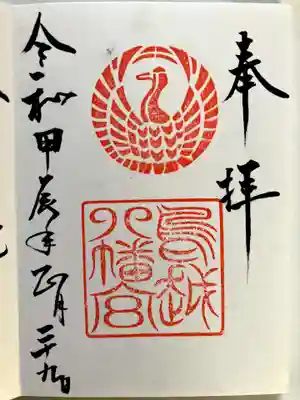 奉拝
鳥越
八幡宮
令和甲辰年正月二十九日